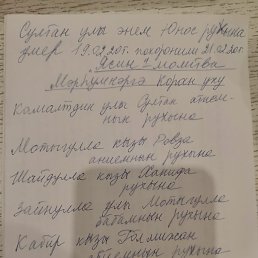 Султан улы энем Юнос рухына
умер 19.02.20г. похоронили 21.02.20г.
Ясин 1 молитва
Мэрхумнэргэ Коран уку
Камалтдин улы Султан атием-
нын рухына
Мотыгулла кызы Ровза
аниемнын рухына
Шайдулла кызы Хамида
рухына
Зайнулла улы Мотыгулла
бабамнын рухына
Кабир кызы Голмижан
рухына